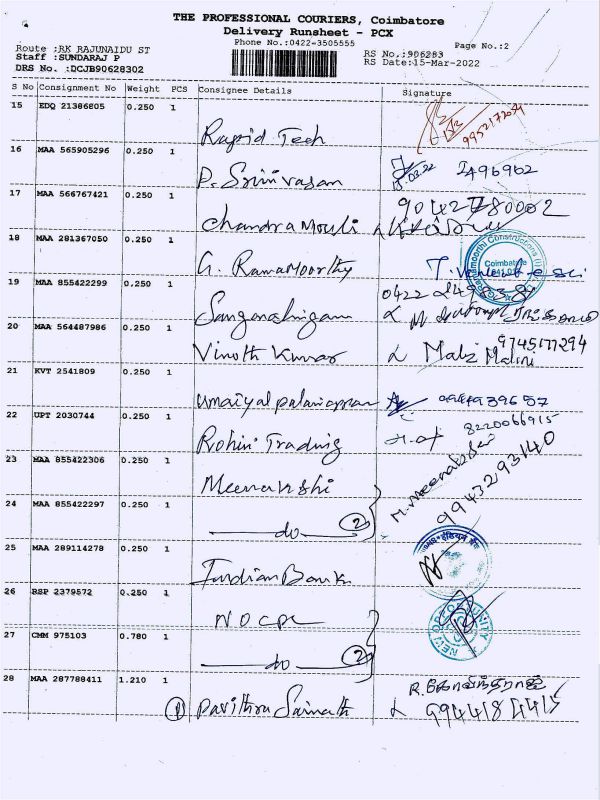 THE PROFESSIONAL COURIERS, Coimbatore
Delivery Runsheet - PCX
Phone No.:0422-3505555
Page No.:2
Route :RK RAJUNAIDU ST
RS No.:906283
Staff :SUNDARAJ P
RS Date:15-Mar-2022
DRS No. :DCJB90628302
S No Consignment No Weight PCS Consignee Details Signature
15 EDQ 21386805 0.250 1
Rapid Tech 9952172054
16 MAA 565905296 0.250 1
P. Srinivasan 15.03.22 2496962
17 MAA 566767421 0.250 1
Chandramouli 9042780002
18 MAA 281367050 0.250 1
G. Ramamoorthy
Coimbatore
19 MAA 855422299 0.250 1
0422
Sanganalnigam
20 MAA 564487986 0.250 1
Vinoth Kumar Malini 9745177294
21 KVT 2541809 0.250 1
Umaiyal palaniappan
22 UPT 2030744 0.250 1
Rohini Trading 8220066915
23 MAA 855422306 0.250 1
Meenakshi M. Meenakshi
9943293140
24 MAA 855422297 0.250 1
do 2
25 MAA 289114278 0.250 1
Indian Bank
26 RSP 2379572 0.250 1
NOCPL
27 CMM 975103 0.780 1
do 2
28 MAA 287788411 1.210 1
1 Pavithra Sainath